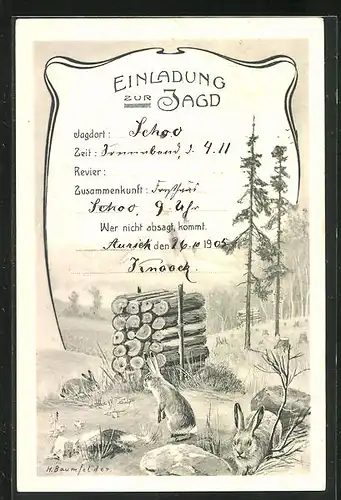 EINLADUNG
ZUR JAGD
Jagdort: Schoo
Zeit: Sonnabend, d. 4.11
Revier:
Zusammenkunft: Forsthaus
Schoo, 9 Uhr
Wer nicht absagt, kommt.
Aurich den 26. 1905
Knoock
H. Baumfelder